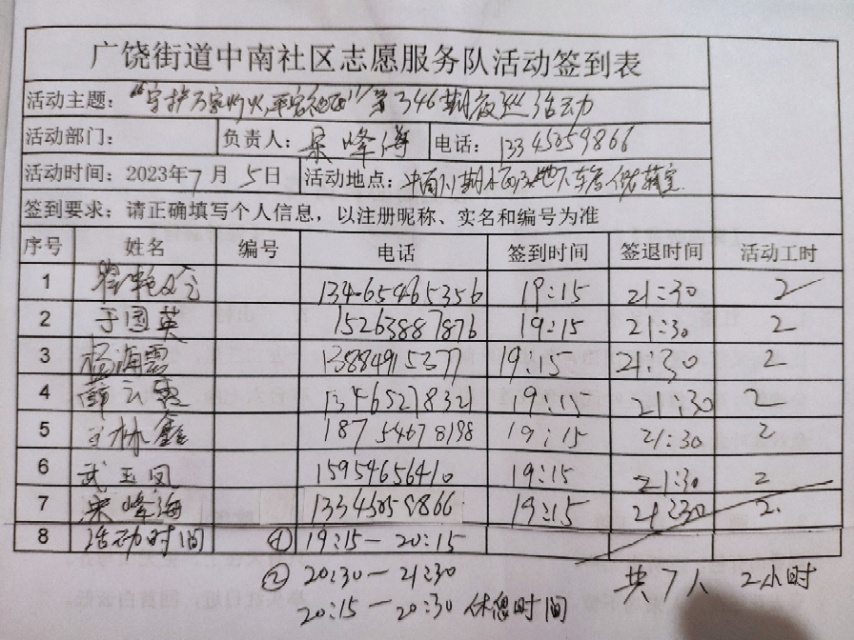 广饶街道中南社区志愿服务队活动签到表
活动主题："守护万家灯火平安社区"第346期夜巡活动
活动部门： 负责人：宋峰海 电话：13345059866
活动时间：2023年7月5日 活动地点：中南
签到要求：请正确填写个人信息，以注册昵称、实名和编号为准
序号 姓名 编号 电话 签到时间 签退时间 活动工时
1 13465465356 19:15 21:30 2
2 于国英 15263887876 19:15 21:30 2
3 杨海霞 13884915377 19:15 21:30 2
4 薛 13465278321 19:15 21:30 2
5 王林鑫 18754678198 19:15 21:30 2
6 武玉凤 15954656410 19:15 21:30 2
7 宋峰海 13345059866 19:15 21:30 2
8 活动时间 ① 19:15－20:15
② 20:30－21:30 共7人 2小时
20:15－20:30休息时间